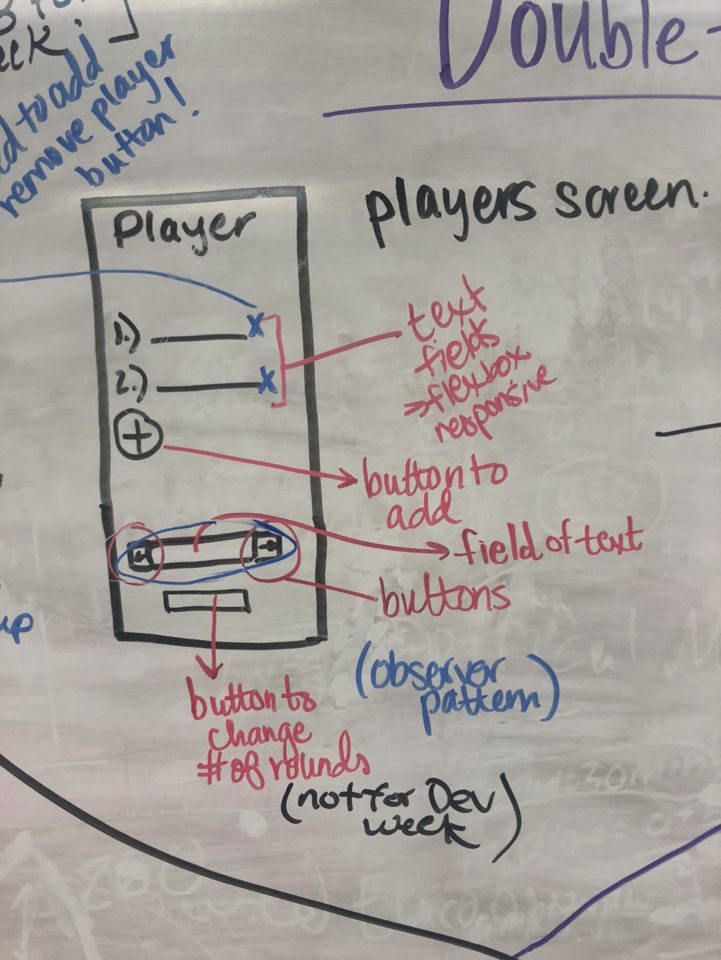 Double-
eek!
to add
remove player
button!
players screen.
Player
1.)
x
2.)
x
+
text
fields
→flexbox
responsive
button to
add
field of text
buttons
(observer
pattern)
button to
change
# of rounds
(not for Dev
week)
up